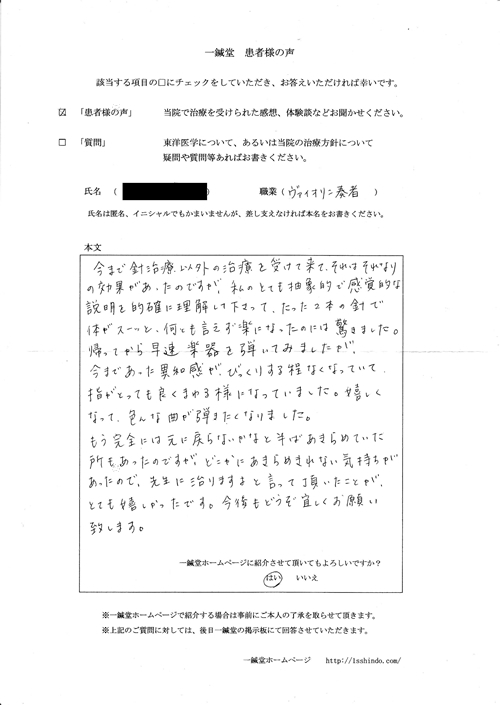 一鍼堂　患者様の声
該当する項目の□にチェックをしていただき、お答えいただければ幸いです。
☑　「患者様の声」　当院で治療を受けられた感想、体験談などお聞かせください。
□　「質問」　東洋医学について、あるいは当院の治療方針について
疑問や質問等あればお書きください。
氏名　（　）　職業（ヴァイオリン奏者　）
氏名は匿名、イニシャルでもかまいませんが、差し支えなければ本名をお書きください。
本文
今まで針治療以外の治療を受けて来て、それはそれなり
の効果があったのですが、私のとても抽象的で感覚的な
説明を的確に理解して下さって、たった2本の針で
体がスーッと、何とも言えず楽になったのには驚きました。
帰ってから早速楽器を弾いてみましたが、
今まであった異和感が、びっくりする程なくなっていて、
指がとっても良くまわる様になっていました。嬉しく
なって、色んな曲が弾きたくなりました。
もう完全には元に戻らないかなと半ばあきらめていた
所もあったのですが、どこかにあきらめきれない気持ちが
あったので、先生に治りますよと言って頂いたことが、
とても嬉しかったです。今後もどうぞ宜しくお願い
致します。
一鍼堂ホームページに紹介させて頂いてもよろしいですか？
はい　いいえ
※一鍼堂ホームページで紹介する場合は事前にご本人の了承を取らせて頂きます。
※上記のご質問に対しては、後日一鍼堂の掲示板にて回答させていただきます。
一鍼堂ホームページ　http://1sshindo.com/